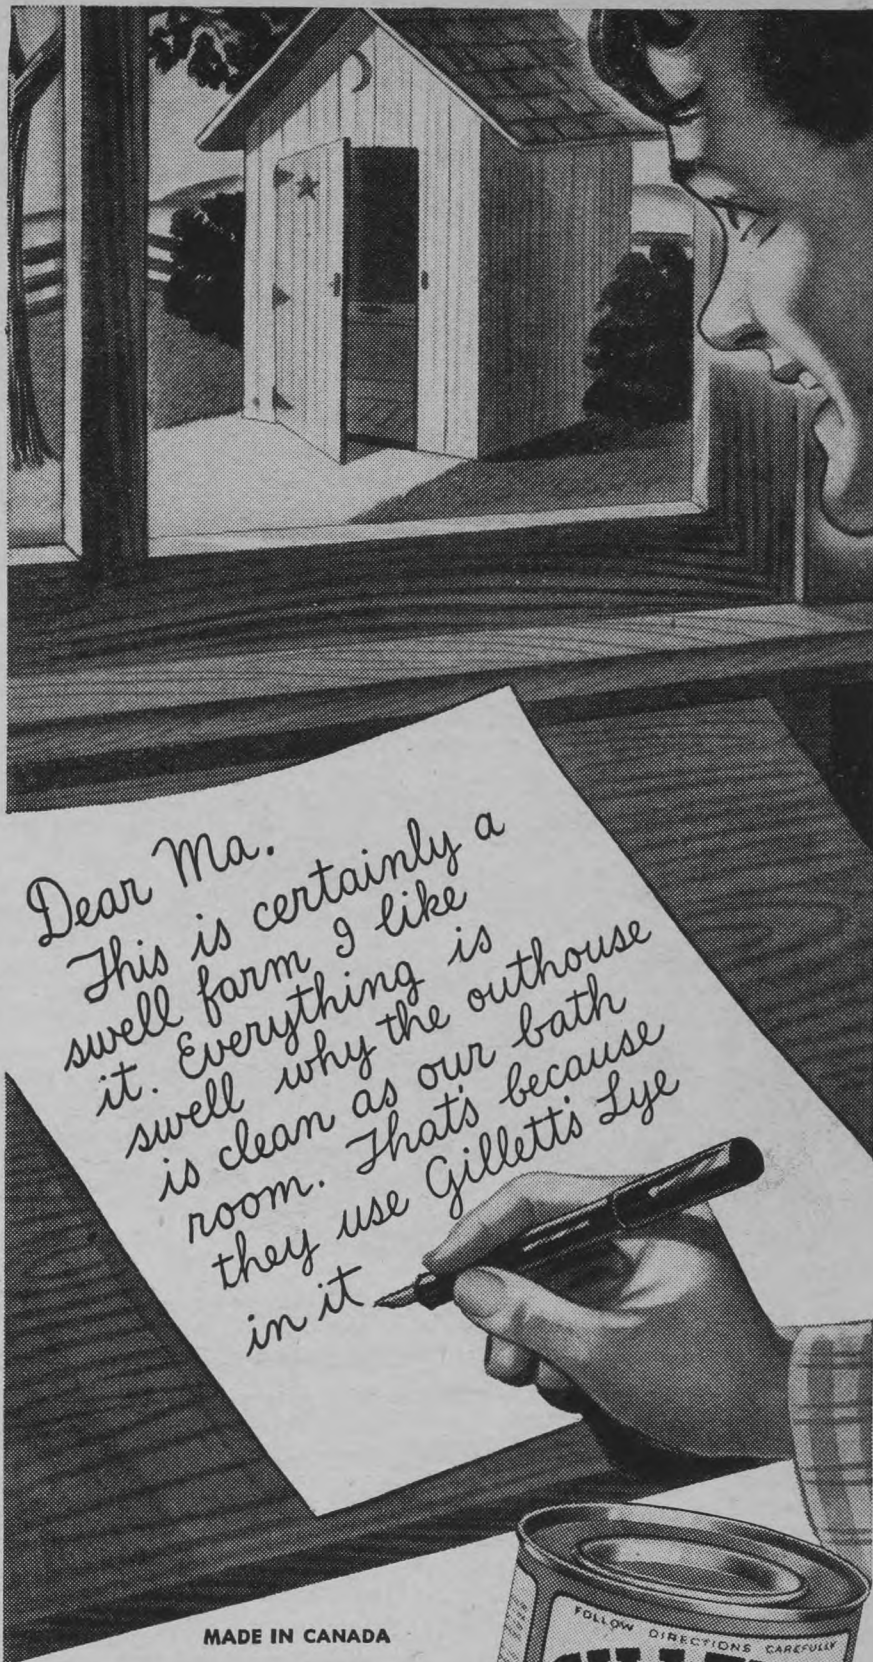 Dear Ma.
This is certainly a
swell farm I like
it. Everything is
swell why the outhouse
is clean as our bath
room. That's because
they use Gillett's Lye
in it
MADE IN CANADA
FOLLOW DIRECTIONS CAREFULLY